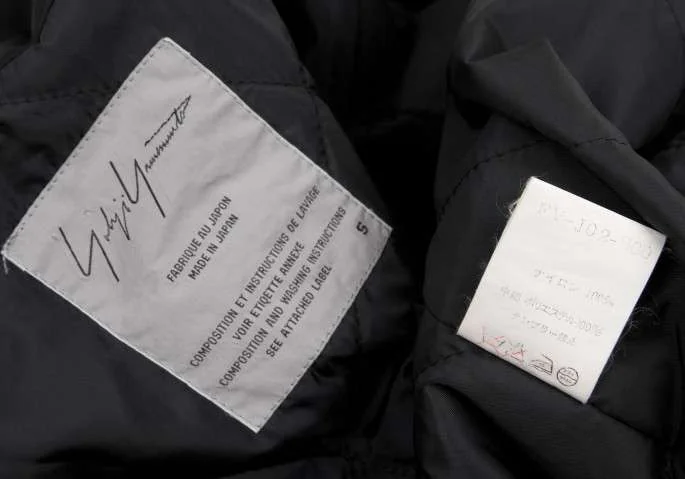 Yohji Yamamoto
FABRIQUE AU JAPON
MADE IN JAPAN
COMPOSITION ET INSTRUCTIONS DE LAVAGE
VOIR ETIQETTE ANNEXE
COMPOSITION AND WASHING INSTRUCTIONS
SEE ATTACHED LABEL
S
ナイロン 100%
中綿 ポリエステル100%
タンブラー禁止